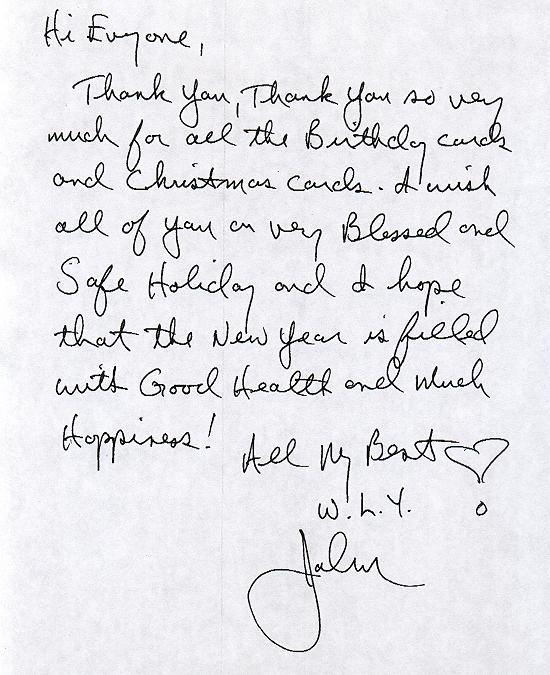 Hi Everyone,
Thank you, Thank you so very
much for all the Birthday cards
and Christmas cards. I wish
all of you an very Blessed and
Safe Holiday and I hope
that the New Year is filled
with Good Health and Much
Happiness!
All My Best
W.L.Y.
John